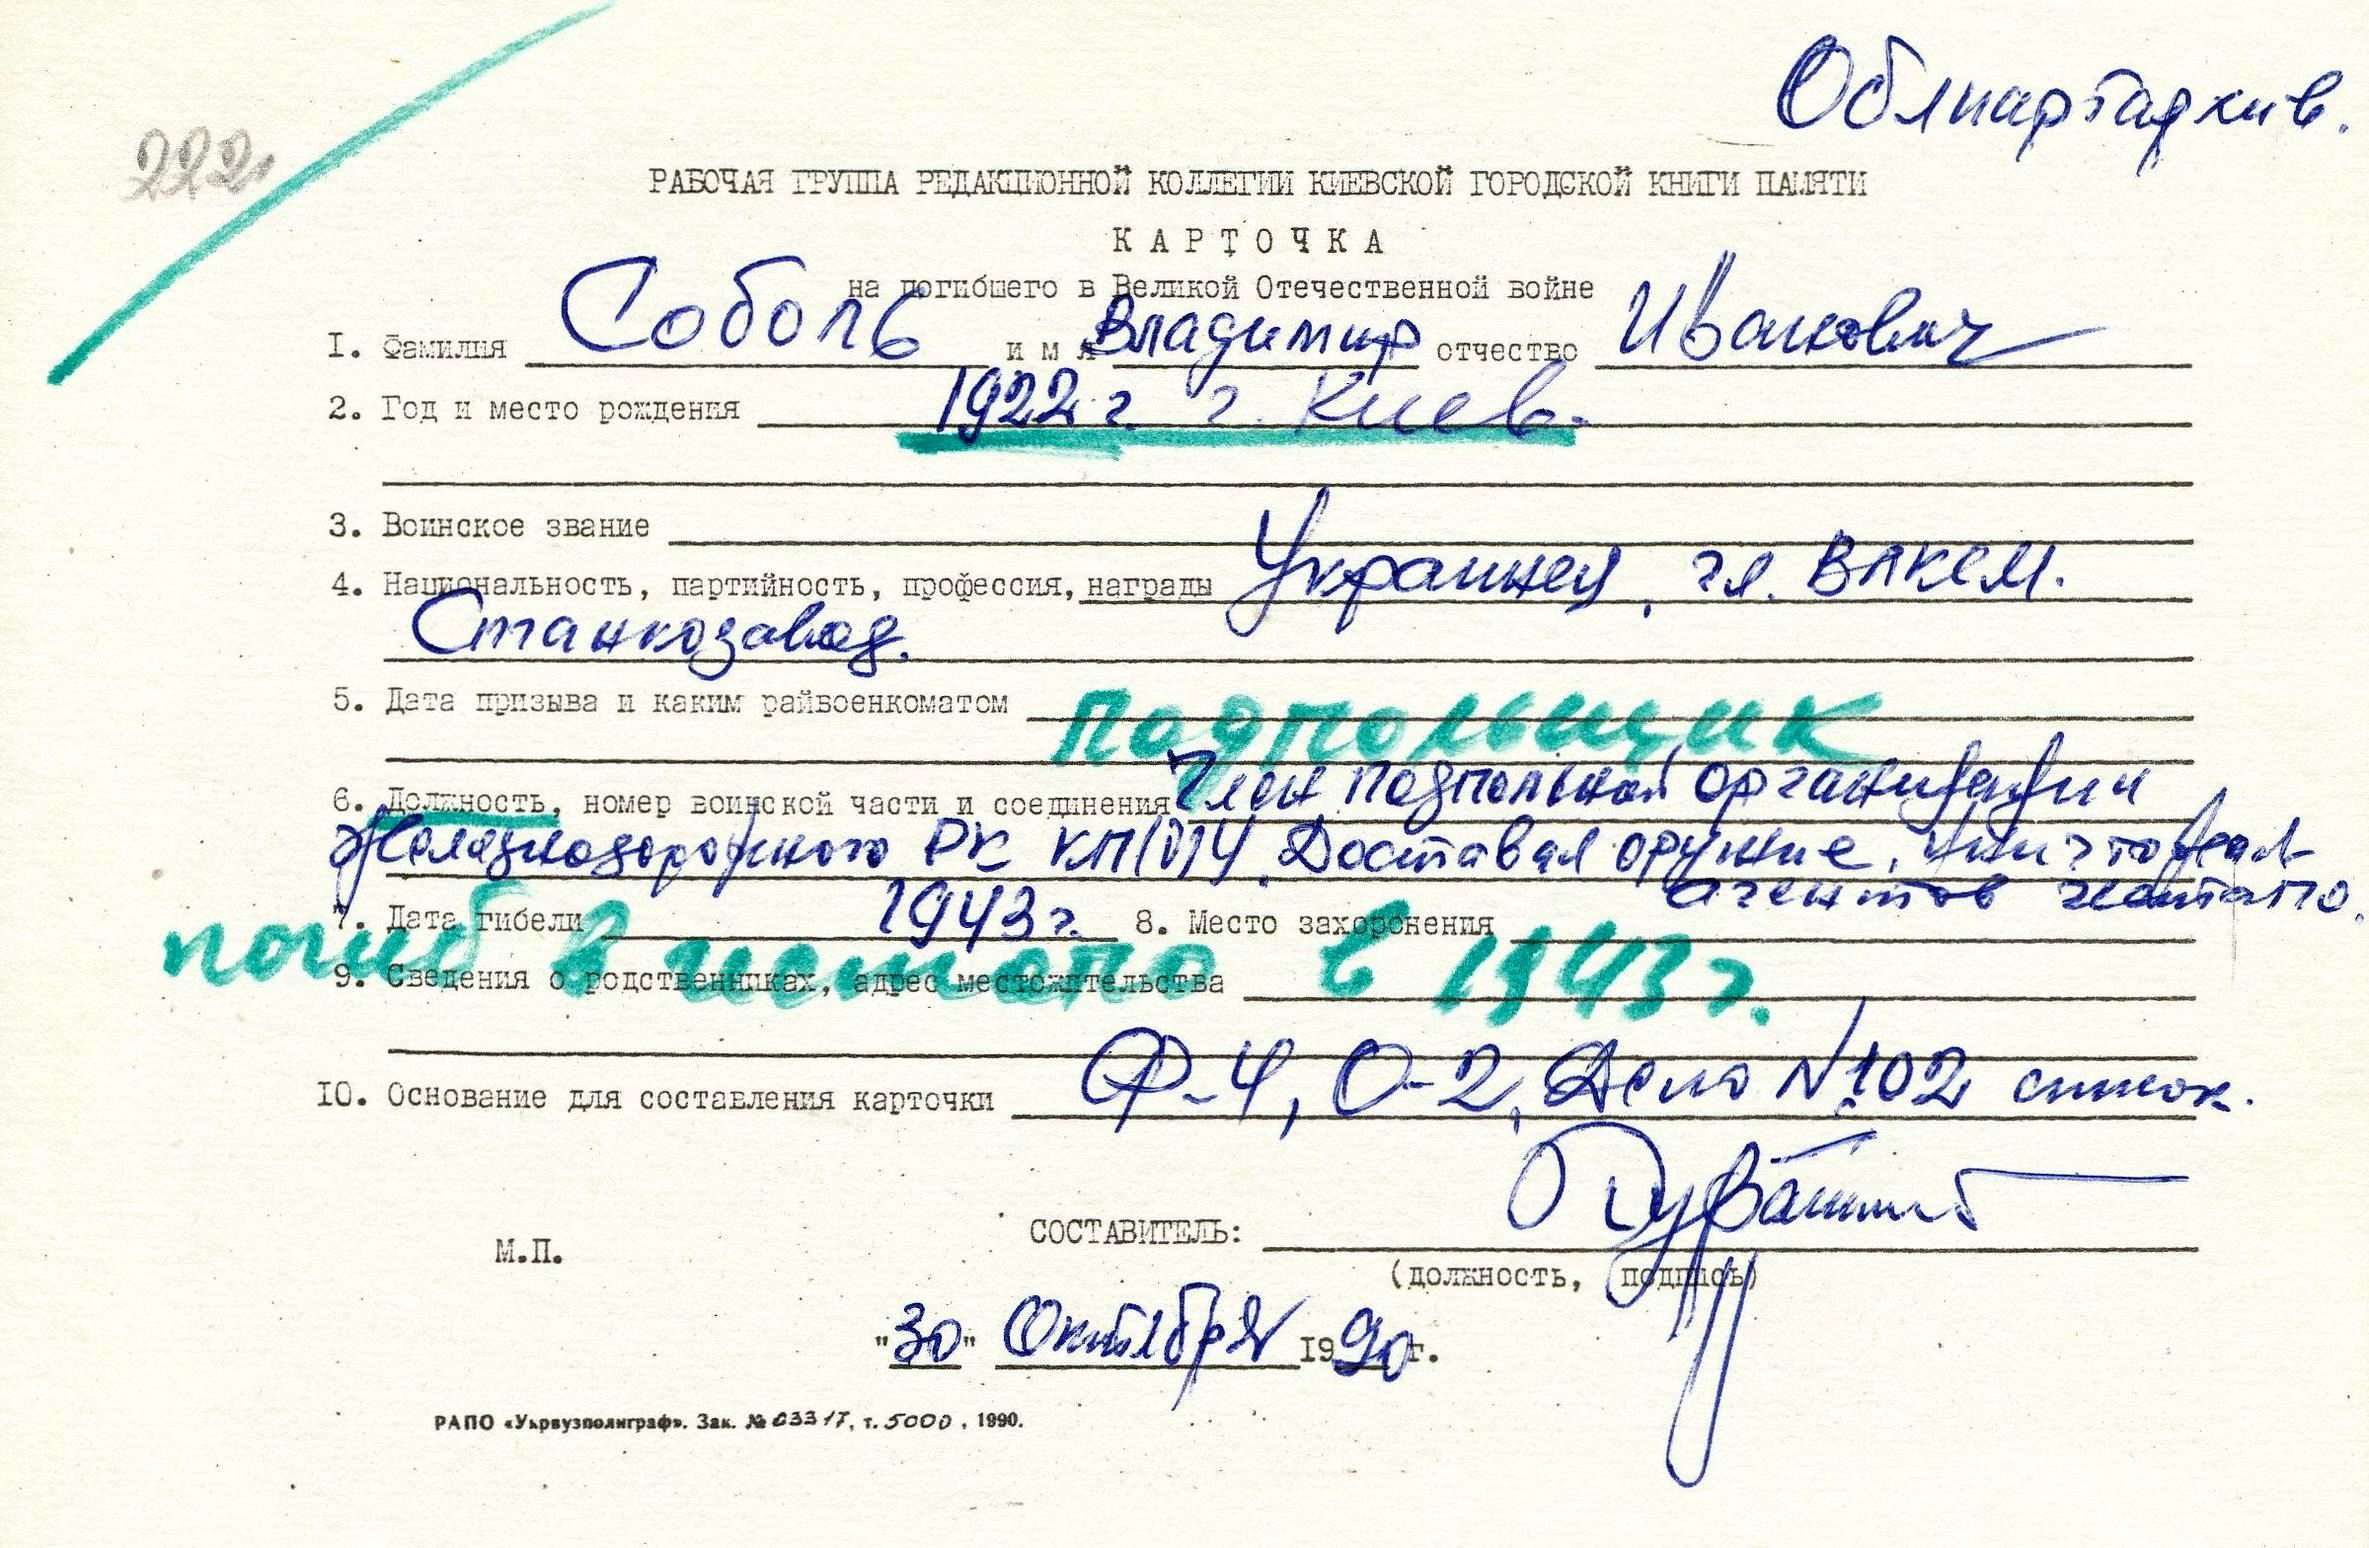 Облпартархив.
222
РАБОЧАЯ ГРУППА РЕДАКЦИОННОЙ КОЛЛЕГИИ КИЕВСКОЙ ГОРОДСКОЙ КНИГИ ПАМЯТИ
КАРТОЧКА
на погибшего в Великой Отечественной войне
1. Фамилия Соболь имя Владимир отчество Иванович
2. Год и место рождения 1922 г. г. Киев.
3. Воинское звание
4. Национальность, партийность, профессия, награды Украинец, чл. ВЛКСМ.
Станкозавод.
5. Дата призыва и каким райвоенкоматом
подпольщик
6. Должность, номер воинской части и соединения Член подпольной организации
Железнодорожного РК КП(б)У. Доставал оружие, уничтожал
агентов гестапо.
7. Дата гибели 1943 г. 8. Место захоронения
погиб в гестапо в 1943 г.
9. Сведения о родственниках, адрес местожительства
10. Основание для составления карточки Ф-4, О-2, Дело №102 список.
СОСТАВИТЕЛЬ:
М.П.
(должность, подпись)
"30" Октября 1990 г.
РАПО «Укрвузполиграф». Зак. № 03317, т. 5000, 1990.